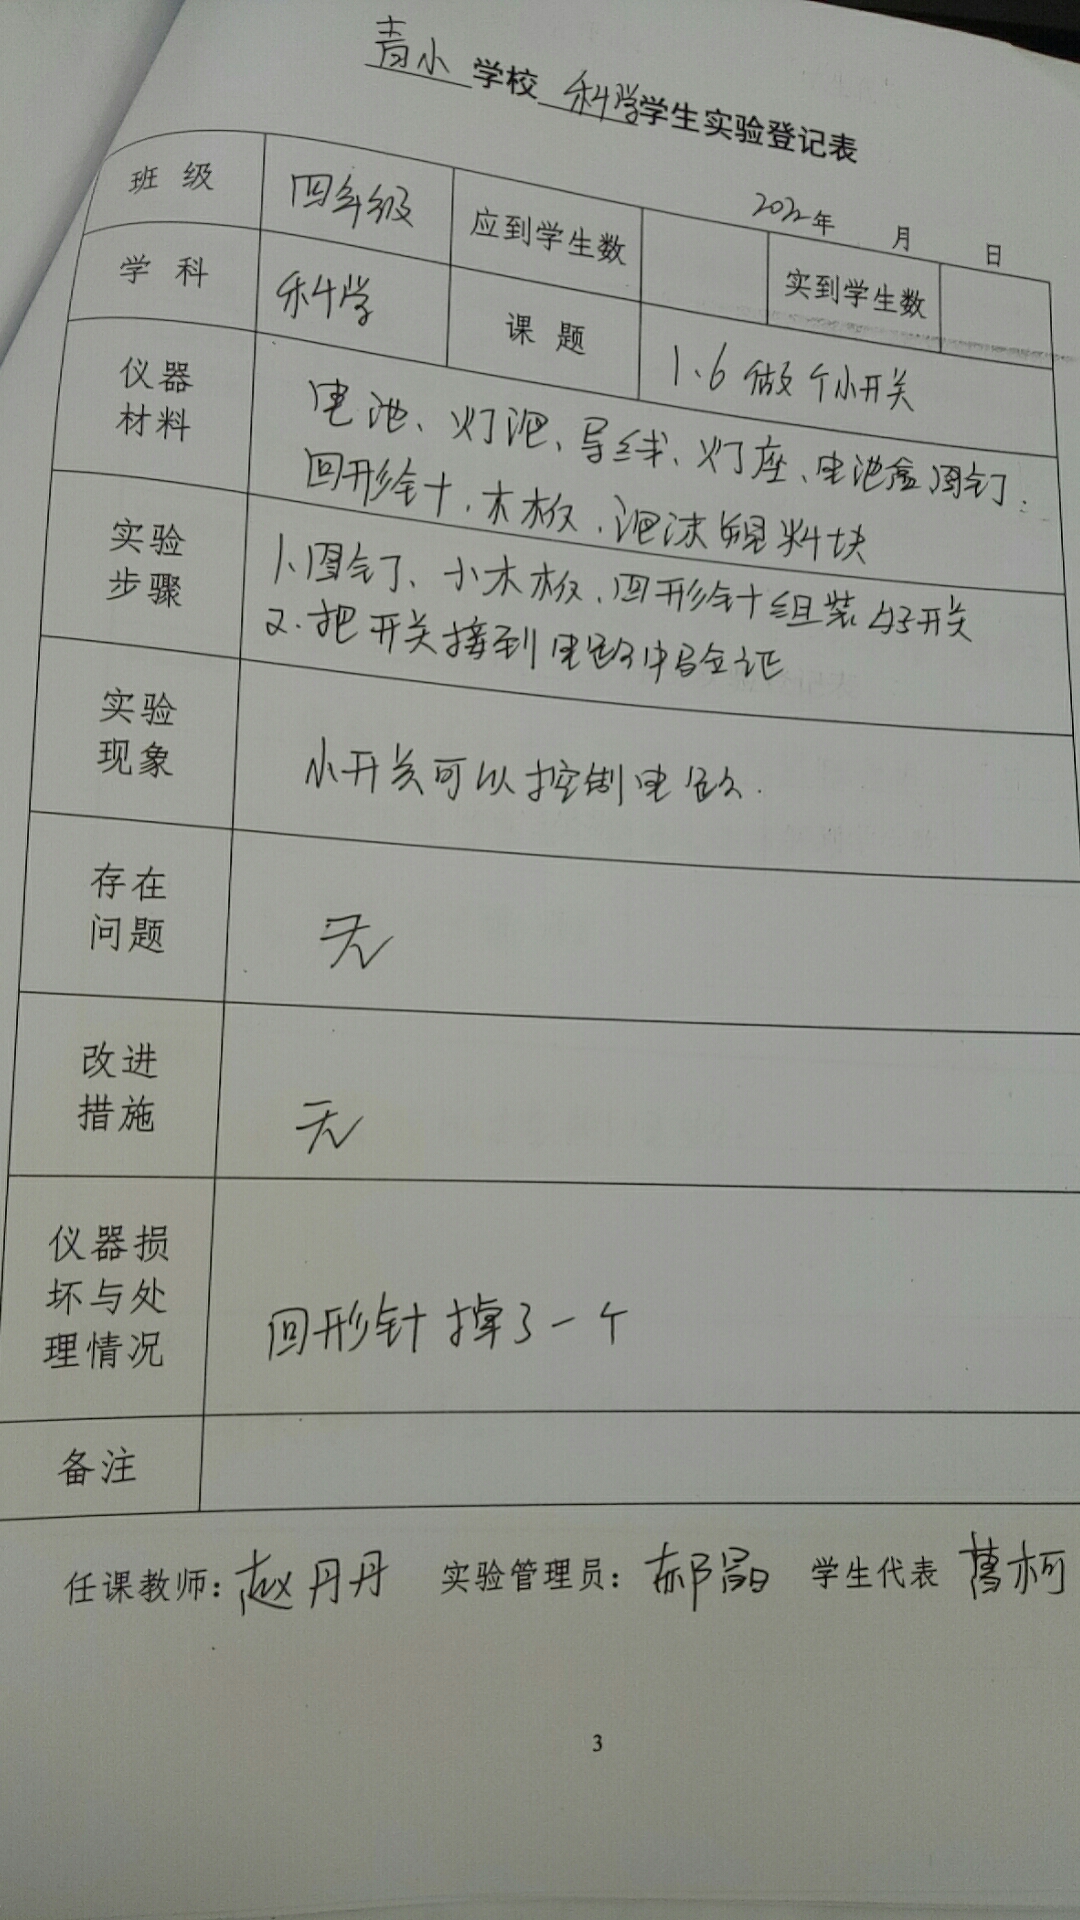 青小 学校 科学学生实验登记表
2022年 月 日
班级 四年级 应到学生数 实到学生数
学科 科学 课题 1.6 做个小开关
仪器
材料
电池、灯泡、导线、灯座、电池盒 图钉
回形针、木板、泡沫塑料块
实验
步骤
1.图钉、小木板、回形针组装好开关
2.把开关接到电路中验证
实验
现象
小开关可以控制电路.
存在
问题
无
改进
措施
无
仪器损
坏与处
理情况
回形针掉了一个
备注
任课教师:赵丹丹 实验管理员:郝晶 学生代表 柯
3